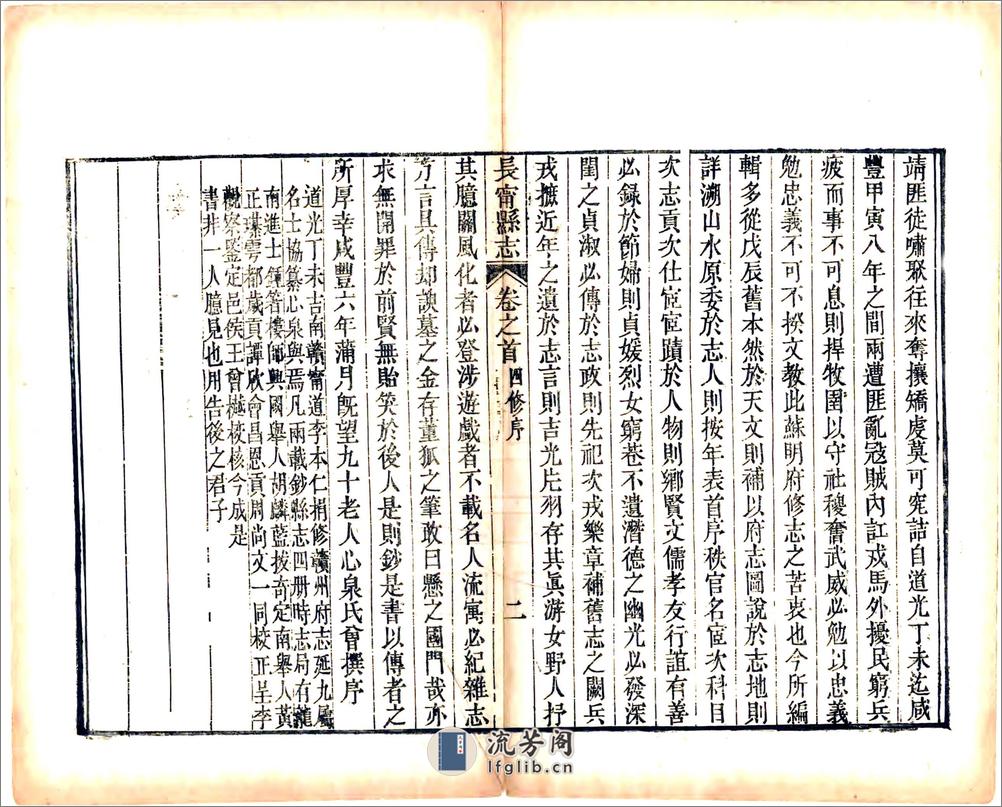 靖匪徒嘯聚往來奪攘矯虔莫可究詰自道光丁未迄咸
豐甲寅八年之間兩遭匪亂寇賊內訌戎馬外擾民窮兵
疲而事不可息則捍牧圉以守社稷奮武威必勉以忠義
勉忠義不可不揆文教此蘇明府修志之苦衷也今所編
輯多從戊辰舊本然於天文則補以府志圖說於志地則
詳溯山水原委於志人則按年表首序秩官名宦次科目
次志貢次仕宦宦蹟於人物則鄉賢文儒孝友行誼有善
必錄於節婦則貞媛烈女窮巷不遺潛德之幽光必發深
閨之貞淑必傳於志政則先祀次戎樂章補舊志之闕兵
戎摭近年之遺於志言則吉光片羽存其眞游女野人抒
長甯縣志 卷之首 四修序 二
其臆關風化者必登涉遊戲者不載名人流寓必紀雜志
方言具傳却諛墓之金存董狐之筆敢曰懸之國門哉亦
求無開罪於前賢無貽笑於後人是則鈔是書以傳者之
所厚幸咸豐六年蒲月旣望九十老人心泉氏曾撰序
道光丁未吉南贛甯道李本仁捐修贛州府志延九屬
名士協纂心泉與焉凡兩載鈔縣志四册時志局有龍
南進士鍾箬樓師興國舉人胡麟藍拔奇定南舉人黃
正瑧雩都歲貢譚欣會昌恩貢周尚文一同校正呈李
觀察鑒定邑侯王曾樾校核今成是
書非一人臆見也用告後之君子
流芳阁
lfglib.cn